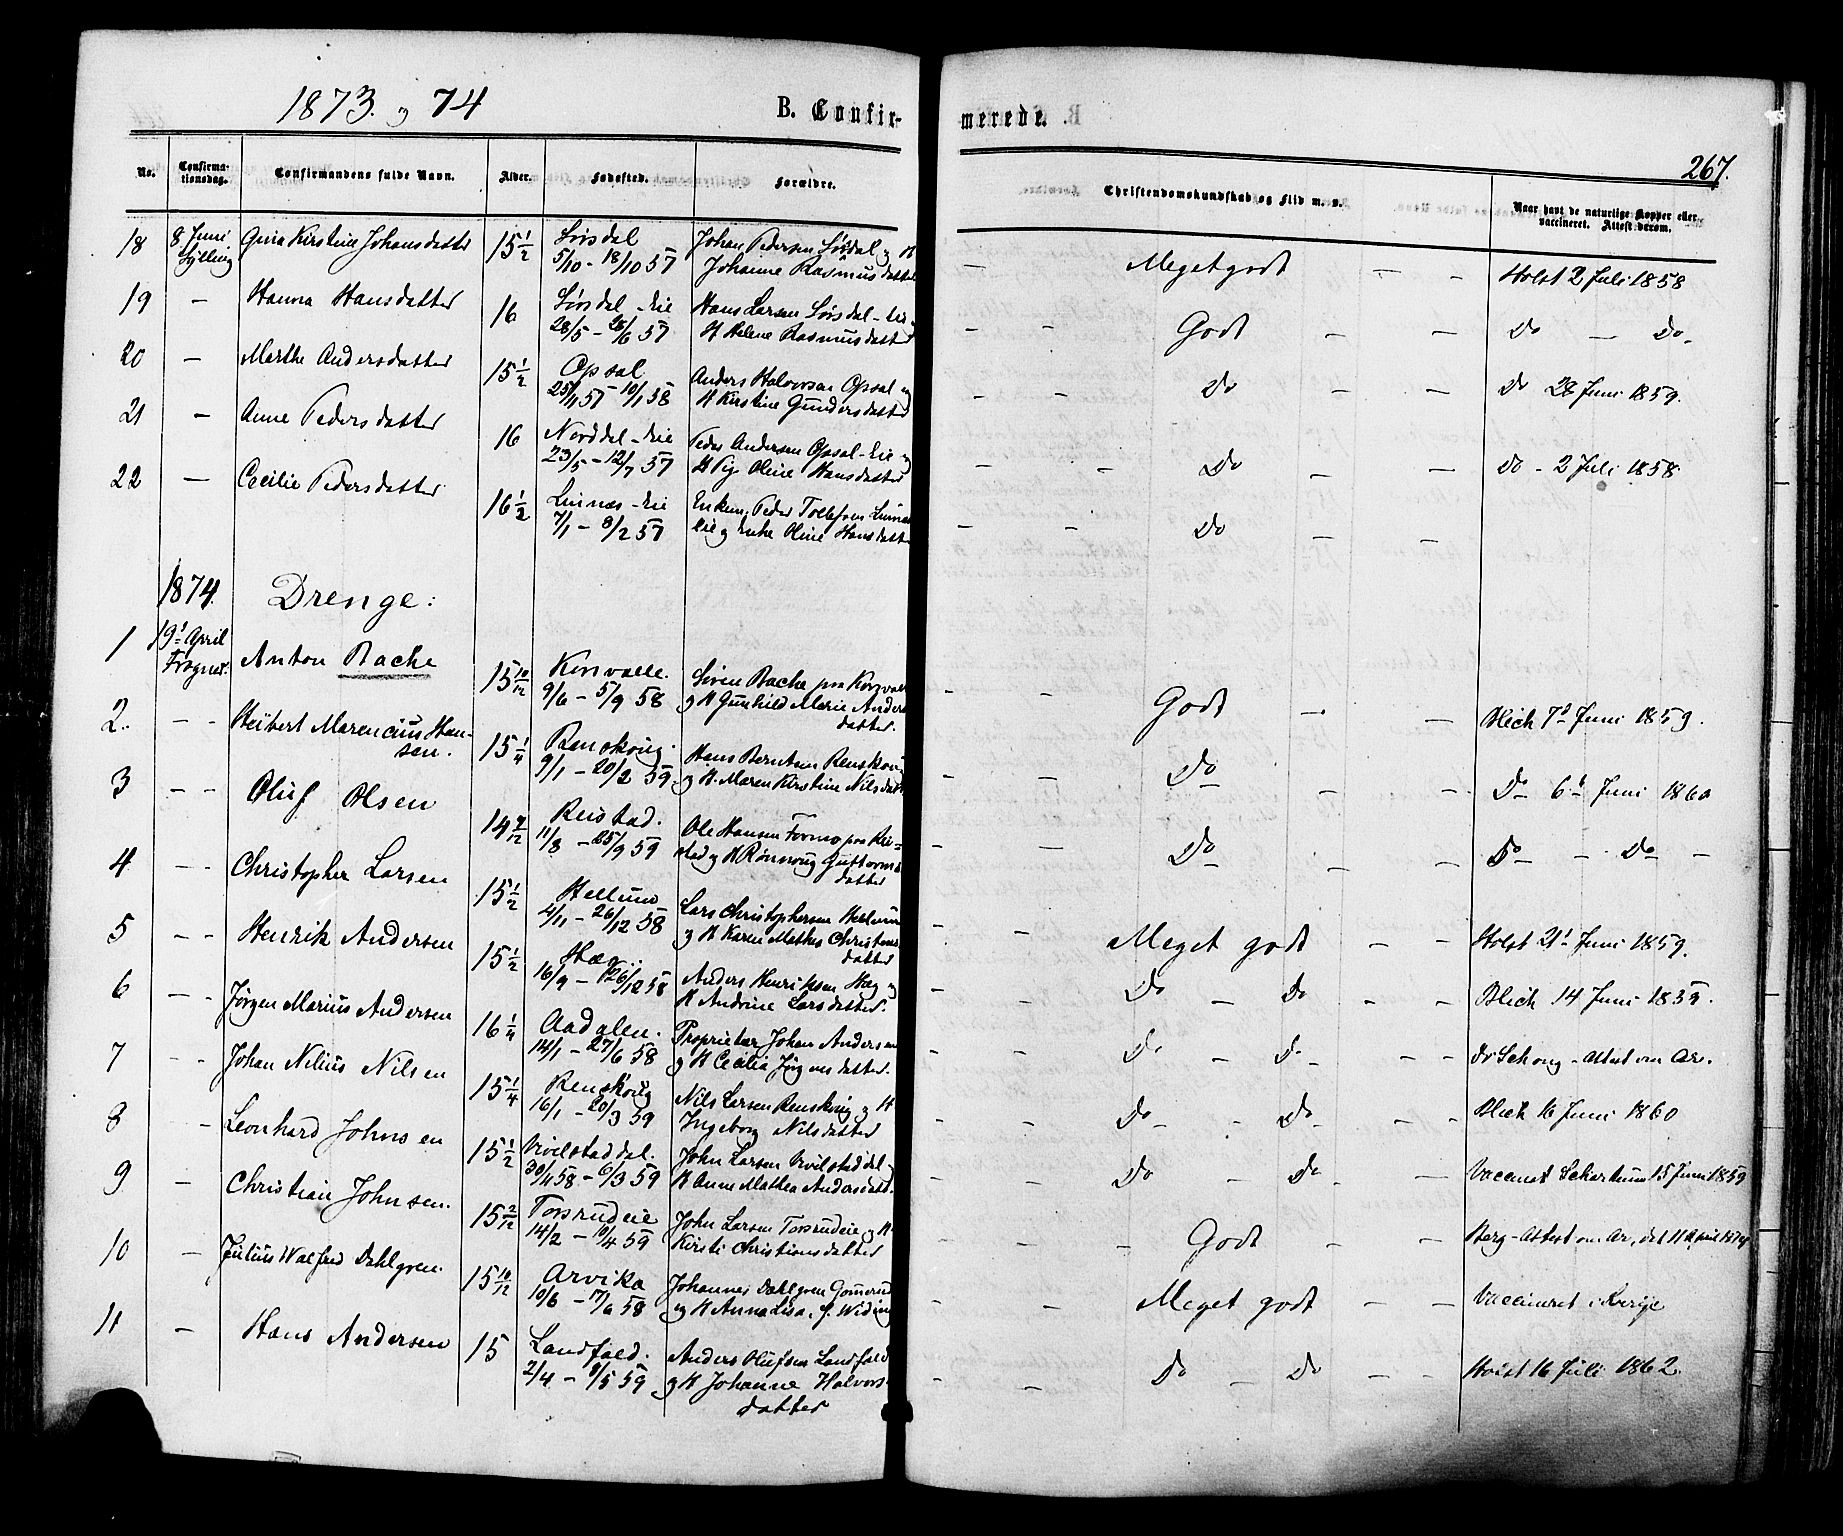 1873. og 74
B. Confir-
merede.
267.
No.
Confirma-
tionsdag.
Confirmandens fulde Navn.
Alder.
Fødested.
Forældre.
Christendomskundskab og Flid m. v.
Naar havt de naturlige Kopper eller
vaccineret. Attest derom.
18 8 Juni Gina Kirstine Johansdatter 15 1/2 Sørsdal Johan Pedersen Sørsdal og H
Sylling 5/10 - 18/10 57 Johanne Rasmusdatter
- Meget godt - - Holst 2 Juli 1858
19 - Hanna Hansdatter 16 Sørsdal - Eie Hans Larsen Sørsdal - Eie
28/5 - 28/6 57 H Helene Rasmusdatter
- - Godt - - Do - Do -
20 - Marthe Andersdatter 15 1/2 Opsal Anders Halvorsen Opsal og
25/11 57 - 10/1 58 H Kirstine Gundersdatter
- - Do - - Do 28 Juni 1859.
21 - Anne Pedersdatter 16 Norddal - Eie Peder Andersen Opsal - Eie og
23/5 - 12/7 57 H Pige Oline Hansdatter
- - Do - - Do - 2 Juli 1858
22 - Cecilie Pedersdatter 16 1/2 Linnæs - Eie Enkem. Peder Tollefsen
7/1 - 8/2 57 Eie og Enke Oline Hansdatter
- - Do - -
1874. Drenge:
1 19de April Anton Bache 15 10/12 Korsvolle. Søren Bache paa
Frogner. 9/6 - 5/9 58 og H Gunhild Marie Anders
datter.
- - Godt - - Blich 7de Juni 1859.
2. - - Heibert Marencius Han-
sen. 15 1/4 Renskoug. Hans Berntsen Renskoug
9/1 - 20/2 59. og H. Maren Kirstine Nilsdatt
- - Do - - Do 6te Juni 1860
3 - - Oluf Olsen 14 7/12 Reistad. Ole Hansen Formo paa Rei-
11/8 - 25/9 59 stad og H Rønnoug
datter
- - Do - - Do - Do -
4 - - Christopher Larsen 15 1/2 Hellum Lars Christophersen Hellum
4/11 - 26/12 58 og H Karen Mathea Christens
datter
- - Meget godt - - Holst 21de Juni 1859.
5 - - Henrik Andersen 15 1/2 Hæg.. Anders Henriksen Hæg og
16/9 - 26/12 58 H Andrine Larsdatter.
- - Do - Do - - Blich 14 Juni 1859.
6 - - Jørgen Marius Andersen 16 1/4 Aadalen. Proprietær Johan Andersen
14/1 - 27/6 58 og H Cecilia Jørgensdatter.
- - Do - Do - - - Attest om Ar.
7 - - Johan Nilius Nilsen 15 1/4 Renskoug Nils Larsen Renskoug og H
16/1 - 20/3 59 Ingeborg Nilsdatter
- - Do - Do - - Blich 16 Juni 1860
8 - Leonhard Johnsen 15 1/2 Vivilstaddal. John Larsen Vivilstaddal -
30/11 58 - 6/3 59 H Anne Mathea Andersdatt.
- - Do - Do - - Vaccineret 15 Juni 1859
9 - Christian Johnsen. 15 2/12 Torsrudeie John Larsen Torsrudeie og H
14/2 - 10/4 59 Kirsti Christiansdatter
- - - Godt - - Berg - Attest om Ar, det 11 April 1874
10 - Julius Walfred Dahlgren. 15 10/12 Arvika Johannes Dahlgren
10/6 - 17/6 58 og H Anna Lisa, f. Widing
- - Meget godt - - Vaccineret i Sverige
11 - Hans Andersen 15 Landfald. Anders Olufsen Landfald
2/4 - 8/5 59 og H Johanne Halvors-
datter
- - Do - Do - - Holst 16 Juli 1862.